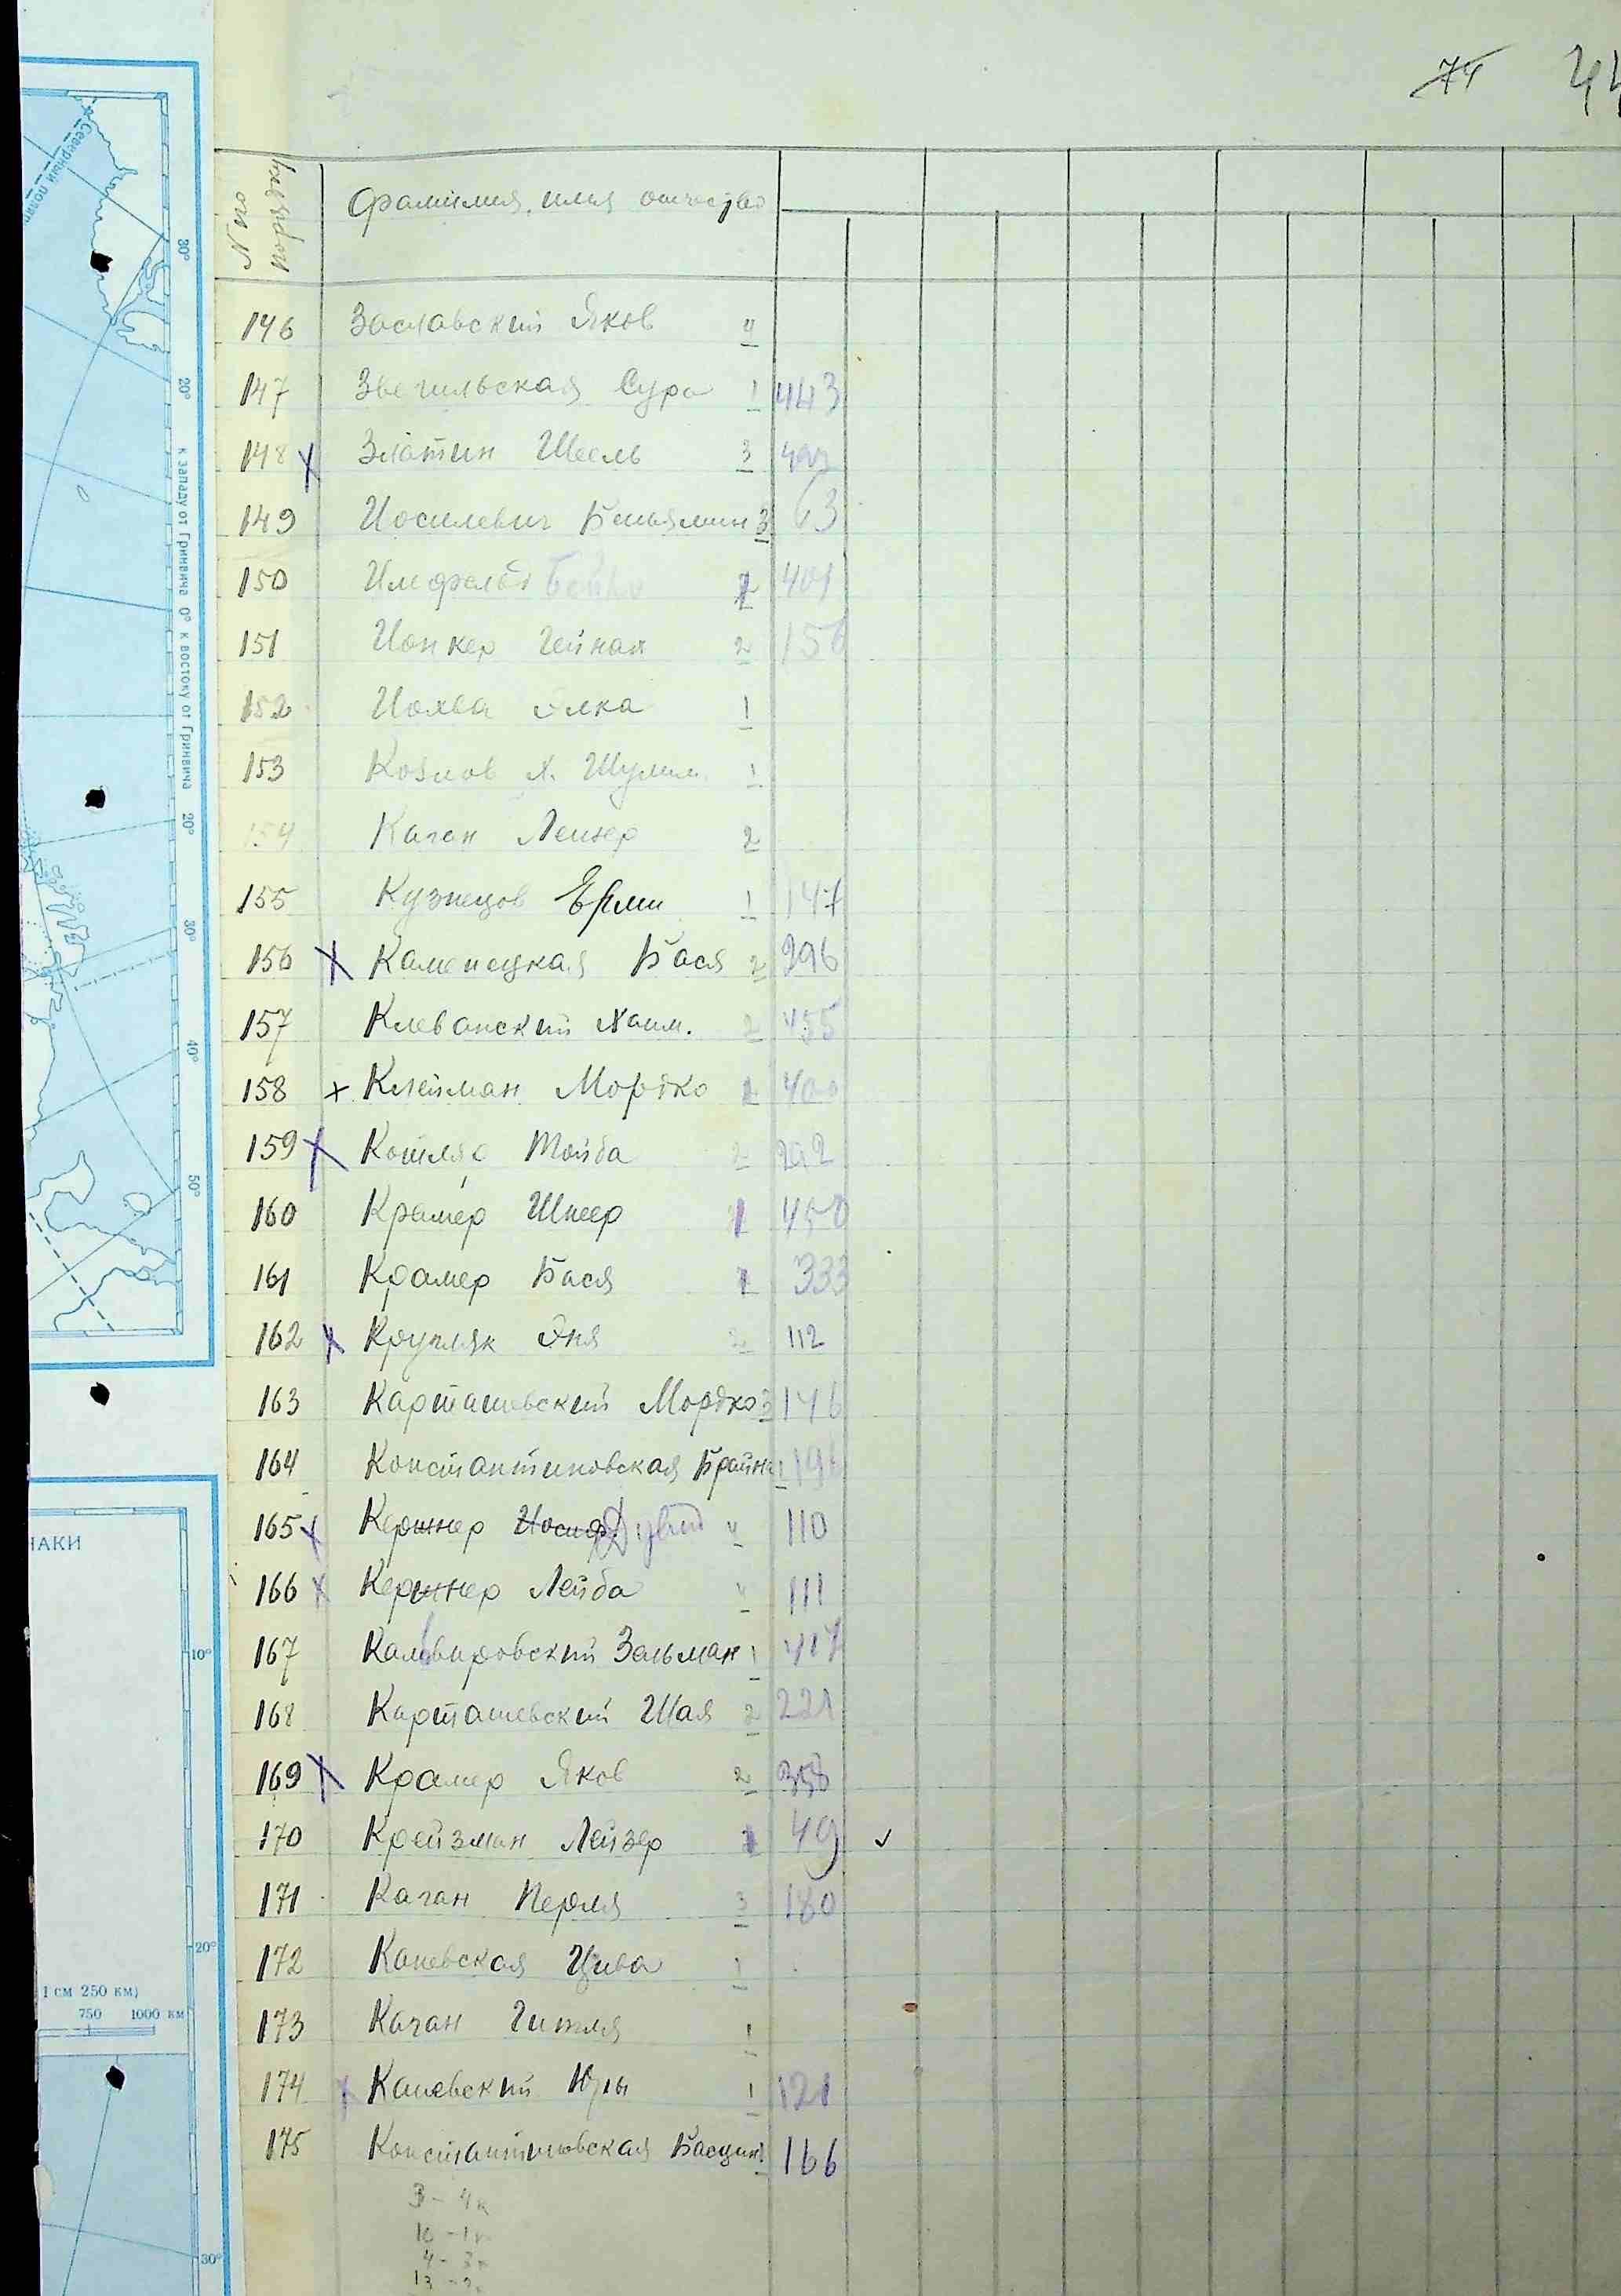 74 44
№ по порядку Фамилия, имя отчество
146 Заславский Яков 4
147 Звегильская Сура 1 443
148 х Златин Шеель 3
149 Иосилевич Беньямин 3 63
150 Имфельд 401
151 Ионкер Гейнах 2 156
152 Иохва Элка 1
153 Козлов Х. Шулим 1
154 Каган Лейзер 2
155 Кузнецов Ефим 1 147
156 х Каменецкая Бася 2 296
157 Клеванский Хаим. 2 455
158 х Клейман Мордко 400
159 х Котляр Тойба 2 292
160 Крамер Шнеер 1 450
161 Крамер Бася 1 333
162 х Крупляк Эня 2 112
163 Карташевский Мордко 3 146
164 Константиновская Брайна 1 196
165 х Кершнер Иосиф Дувид 4 110
166 х Кершнер Лейба 4 111
167 Кальвировский Зельман 1 417
168 Карташевский Шая 2 221
169 х Крамер Яков 2 358
170 Крейзман Лейзер 1 49 ✓
171 Каган Перля 3 180
172 Каневская Цива 1
173 Каган Гитля 1
174 х Каневский 1 121
175 Константиновская 166
3 - 4к
10 - 1к
4 - 3к
13 - 2к
Северный поляр
30°
20°
к западу от Гринвича 0° к востоку от Гринвича
20°
30°
40°
50°
НАКИ
10°
20°
1 см 250 км)
750 1000 км
30°